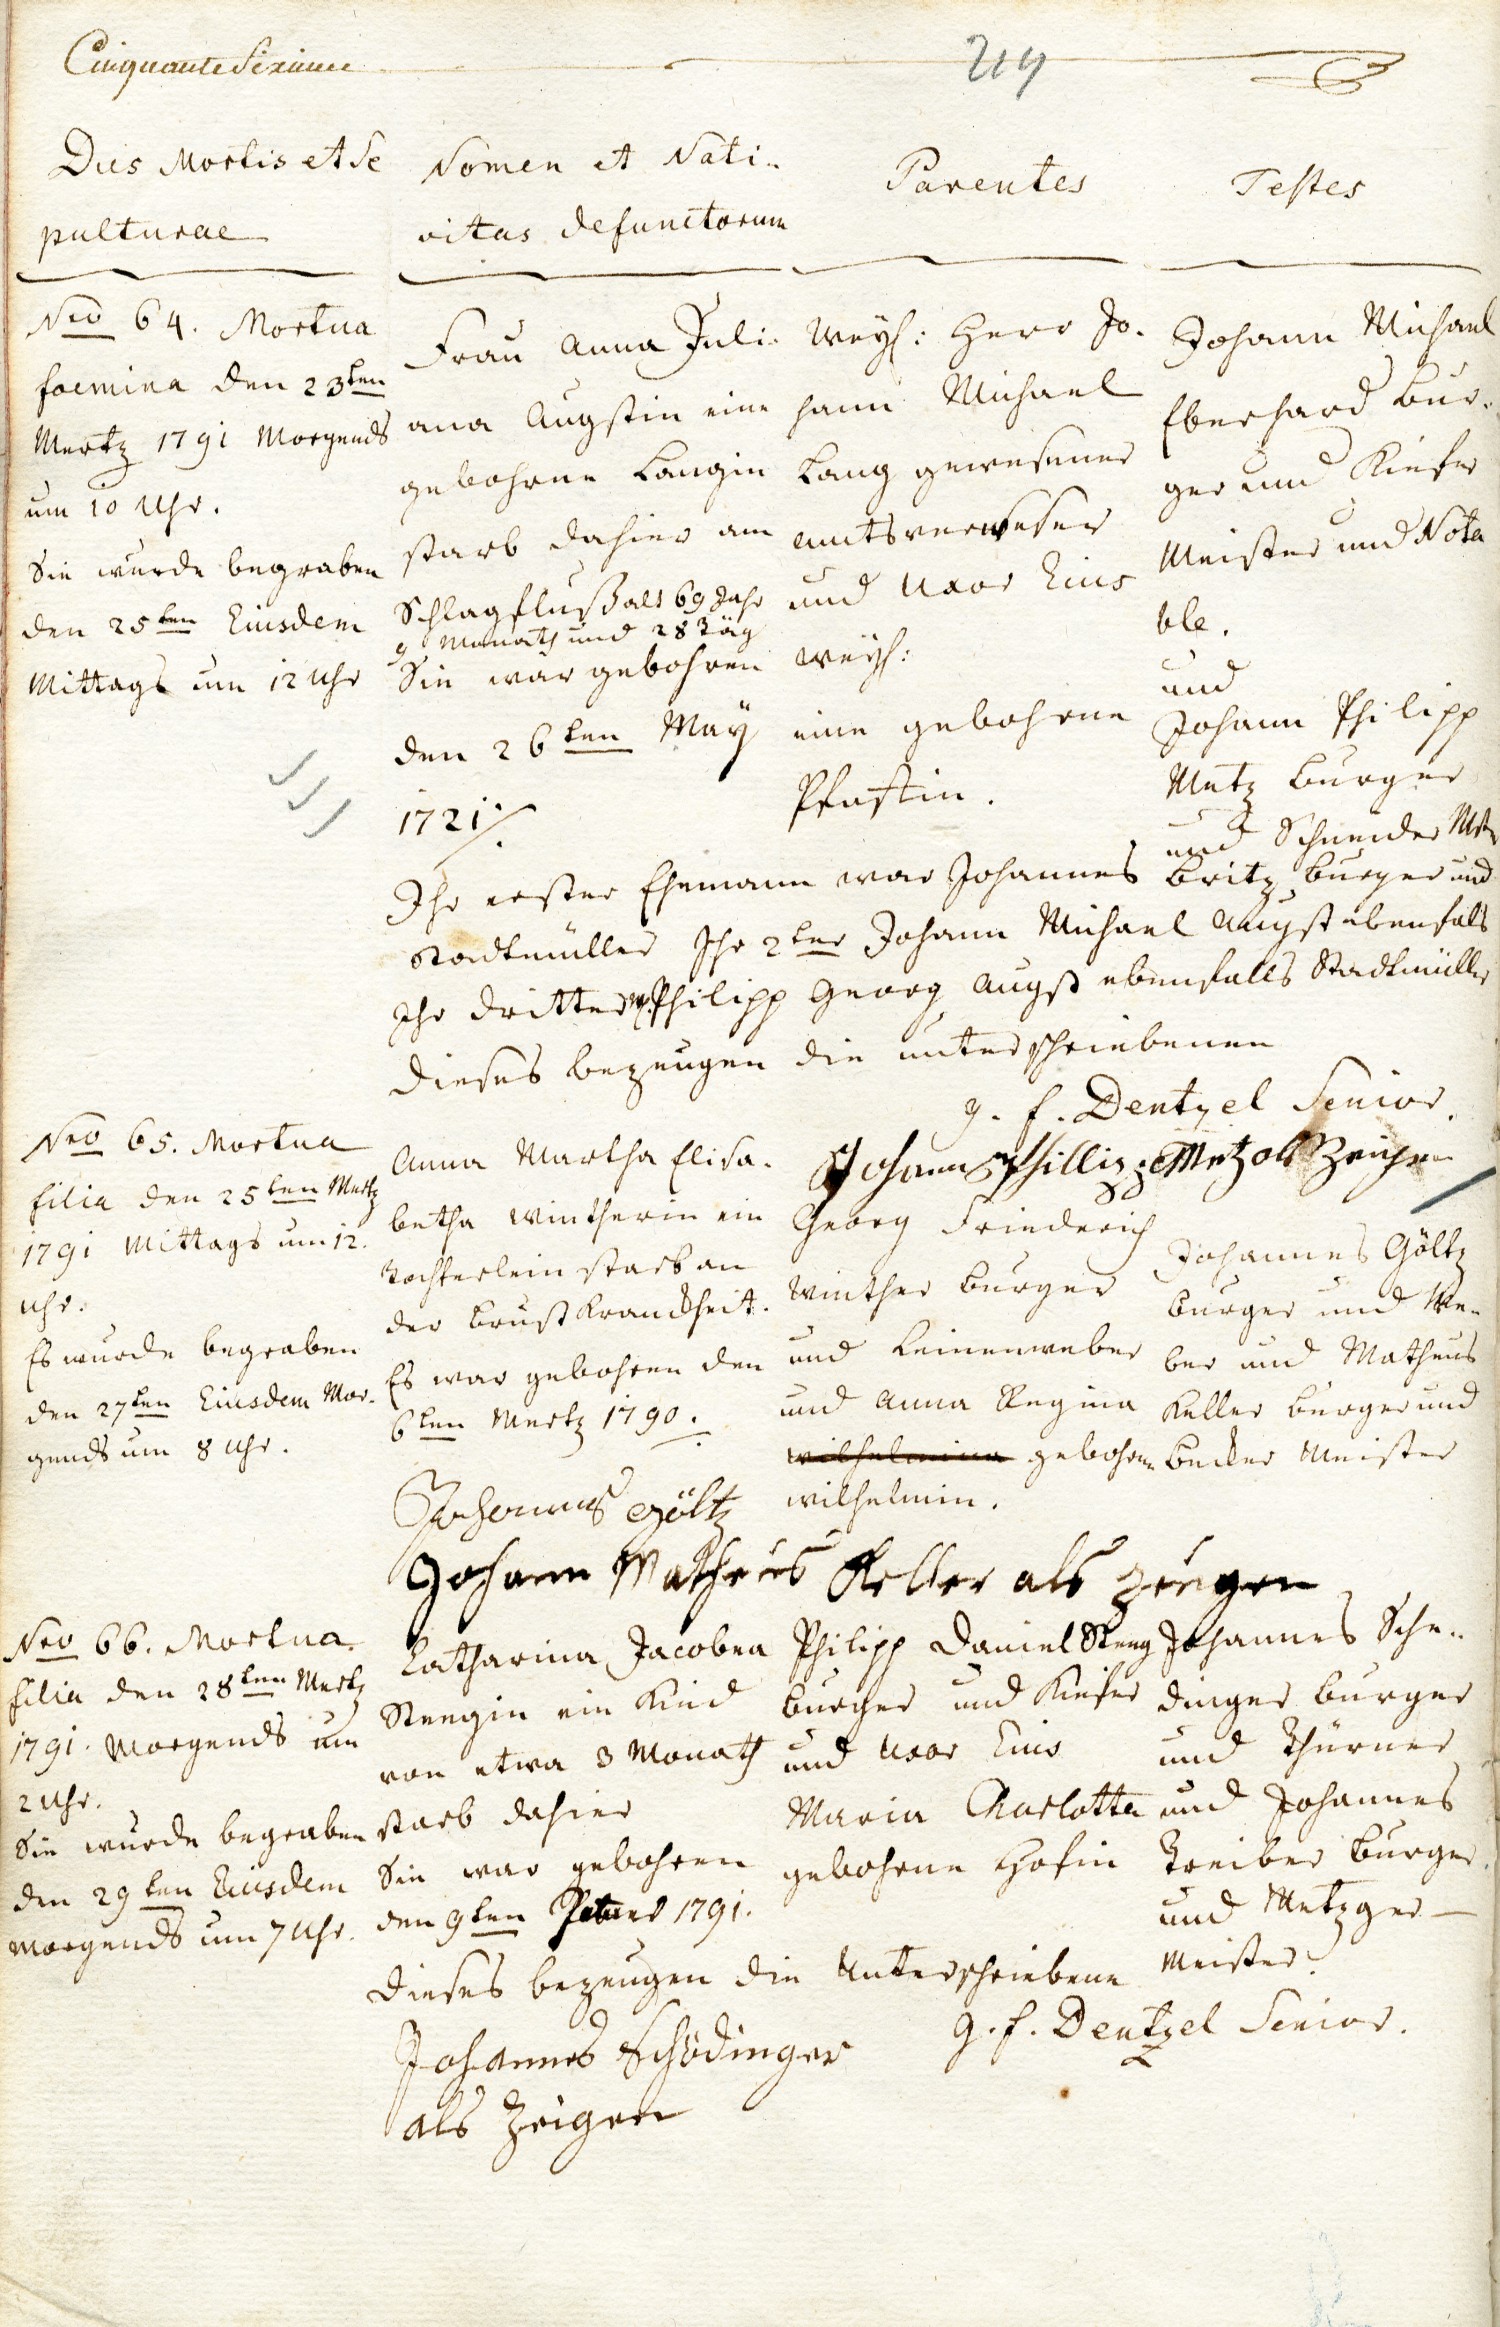 Cinquante Sixieme
219
Dies Mortis et Se
pulturae
Nomen et Nati-
vitas defunctorum
Parentes
Testes
Nro 64. Mortua
foemina den 23ten
Mertz 1791 Morgends
um 10 Uhr.
Sie wurde begraben
den 25ten Eiusdem
Mittags um 12 Uhr
Frau Anna Juli-
ana Augstin eine
gebohrne Langin
starb dahier am
Schlagfluß alt 69 Jahr
9 Monath und 28 Täg
Sie war gebohren
den 26ten May
1721
Weyl: Herr Jo-
hann Michael
Lang gewesener
Amtsverweser
und Uxor Eius
weyl:
eine gebohrne
Pfastin.
Johann Michael
Eberhard Bur-
ger und Kiefer
Meister und Nota
ble.
und
Johann Philipp
Metz Burger
und Schneider Mstr
Ihr erster Ehemann war Johannes Britz Burger und
Stadtmüller Ihr 2ter Johann Michael Augst ebenfals
Ihr dritter Philipp Georg Augst ebenfalls Stadtmüller
Dieses bezeugen die unterschriebenen
G. F. Dentzel Senior.
Johann Phillip Metz als Zeigen
Nro 65. Mortua
filia den 25ten Mertz
1791 Mittags um 12.
Uhr.
Es wurde begraben
den 27ten Eiusdem Mor-
gends um 8 Uhr.
Anna Martha Elisa-
betha Wintherin ein
Tochterlein starb an
der Brust Krankheit.
Es war gebohren den
6ten Mertz 1790.
Georg Friederich
Winther Burger
und Leinenweber
und Anna Regina
Wilhelmina gebohrne
Wilhelmin.
Johannes Göltz
Burger und We-
ber und Matheus
Keller Burger und
Becker Meister
Johannes Göltz
Johann Matheus Keller als Zeugen
Nro 66. Mortua
filia den 28ten Mertz
1791. Morgends um
2 Uhr.
Sie wurde begraben
den 29ten Eiusdem
Morgends um 7 Uhr.
Catharina Jacobea
Stengin ein Kind
von etwa 3 Monath
starb dahier
Sie war gebohren
den 9ten 1791.
Philipp Daniel Steng
Burger und Kiefer
und Uxor Eius
Maria Charlotta
gebohrne Hofin
Johannes Sche-
dinger Burger
und Thürner
und Johannes
Treiber Burger
und Metzger
Meister
Dieses bezeugen die Unterschriebene
G. F. Dentzel Senior.
Johannes Schödinger
als Zeigen